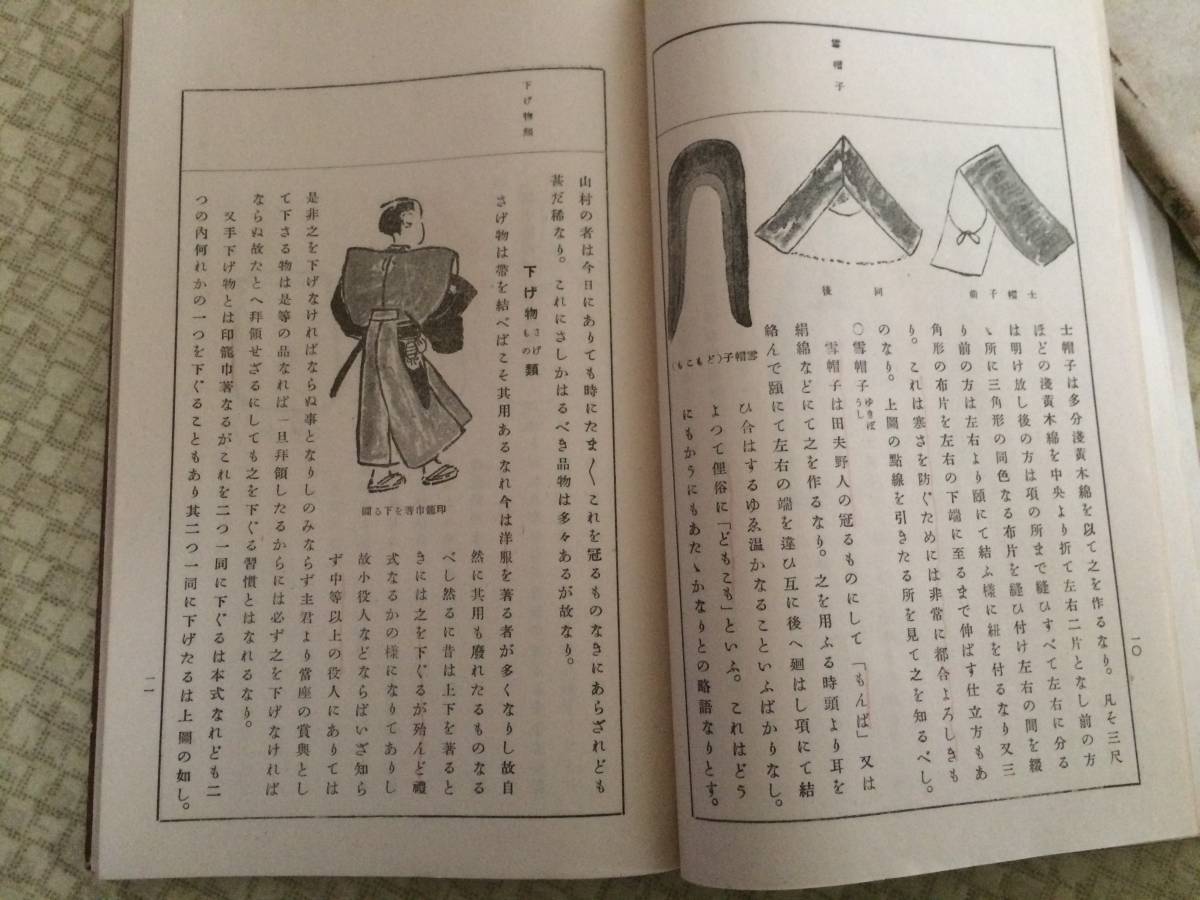 雪帽子
士帽子前
同後
雪帽子(どもこも)
士帽子は多分淺黃木綿を以て之を作るなり。凡そ三尺
ほどの淺黃木綿を中央より折て左右二片となし前の方
は明け放し後の方は項の所まで縫ひすべて左右に分る
ゝ所に三角形の同色なる布片を縫ひ付け左右の間を綴
り前の方は左右より頤にて結ふ樣に紐を付るなり又三
角形の布片を左右の下端に至るまで伸ばす仕立方もあ
り。これは寒さを防ぐためには非常に都合よろしきも
のなり。上圖の點線を引きたる所を見て之を知るべし。
〇雪帽子ゆきぼうし
雪帽子は田夫野人の冠るものにして「もんぱ」又は
絹綿などにて之を作るなり。之を用ふる時頭より耳を
絡んで頤にて左右の端を違ひ互に後へ廻はし項にて結
ひ合はするゆゑ温かなることいふばかりなし。
よつて俚俗に「どもこも」といふ。これはどう
にもかうにもあたゝかなりとの略語なりとす。
一〇
下げ物類
山村の者は今日にありても時にたま〱これを冠るものなきにあらざれども
甚だ稀なり。これにさしかはるべき品物は多々あるが故なり。
下げ物類さげもの
さげ物は帶を結べばこそ其用あるなれ今は洋服を著る者が多くなりし故自
然に其用も廢れたるものなる
べし然るに昔は上下を著ると
きには之を下ぐるが殆んど禮
式なるかの樣になりてありし
故小役人などならばいざ知ら
ず中等以上の役人にありては
印籠巾著を下る圖
是非之を下げなければならぬ事となりしのみならず主君より當座の賞與とし
て下さる物は是等の品なれば一旦拜領したるからには必ず之を下げなければ
ならぬ故たとへ拜領せざるにしても之を下ぐる習慣とはなれるなり。
又手下げ物とは印籠巾著なるがこれを二つ一同に下ぐるは本式なれども二
つの內何れかの一つを下ぐることもあり其二つ一同に下げたるは上圖の如し。
一一